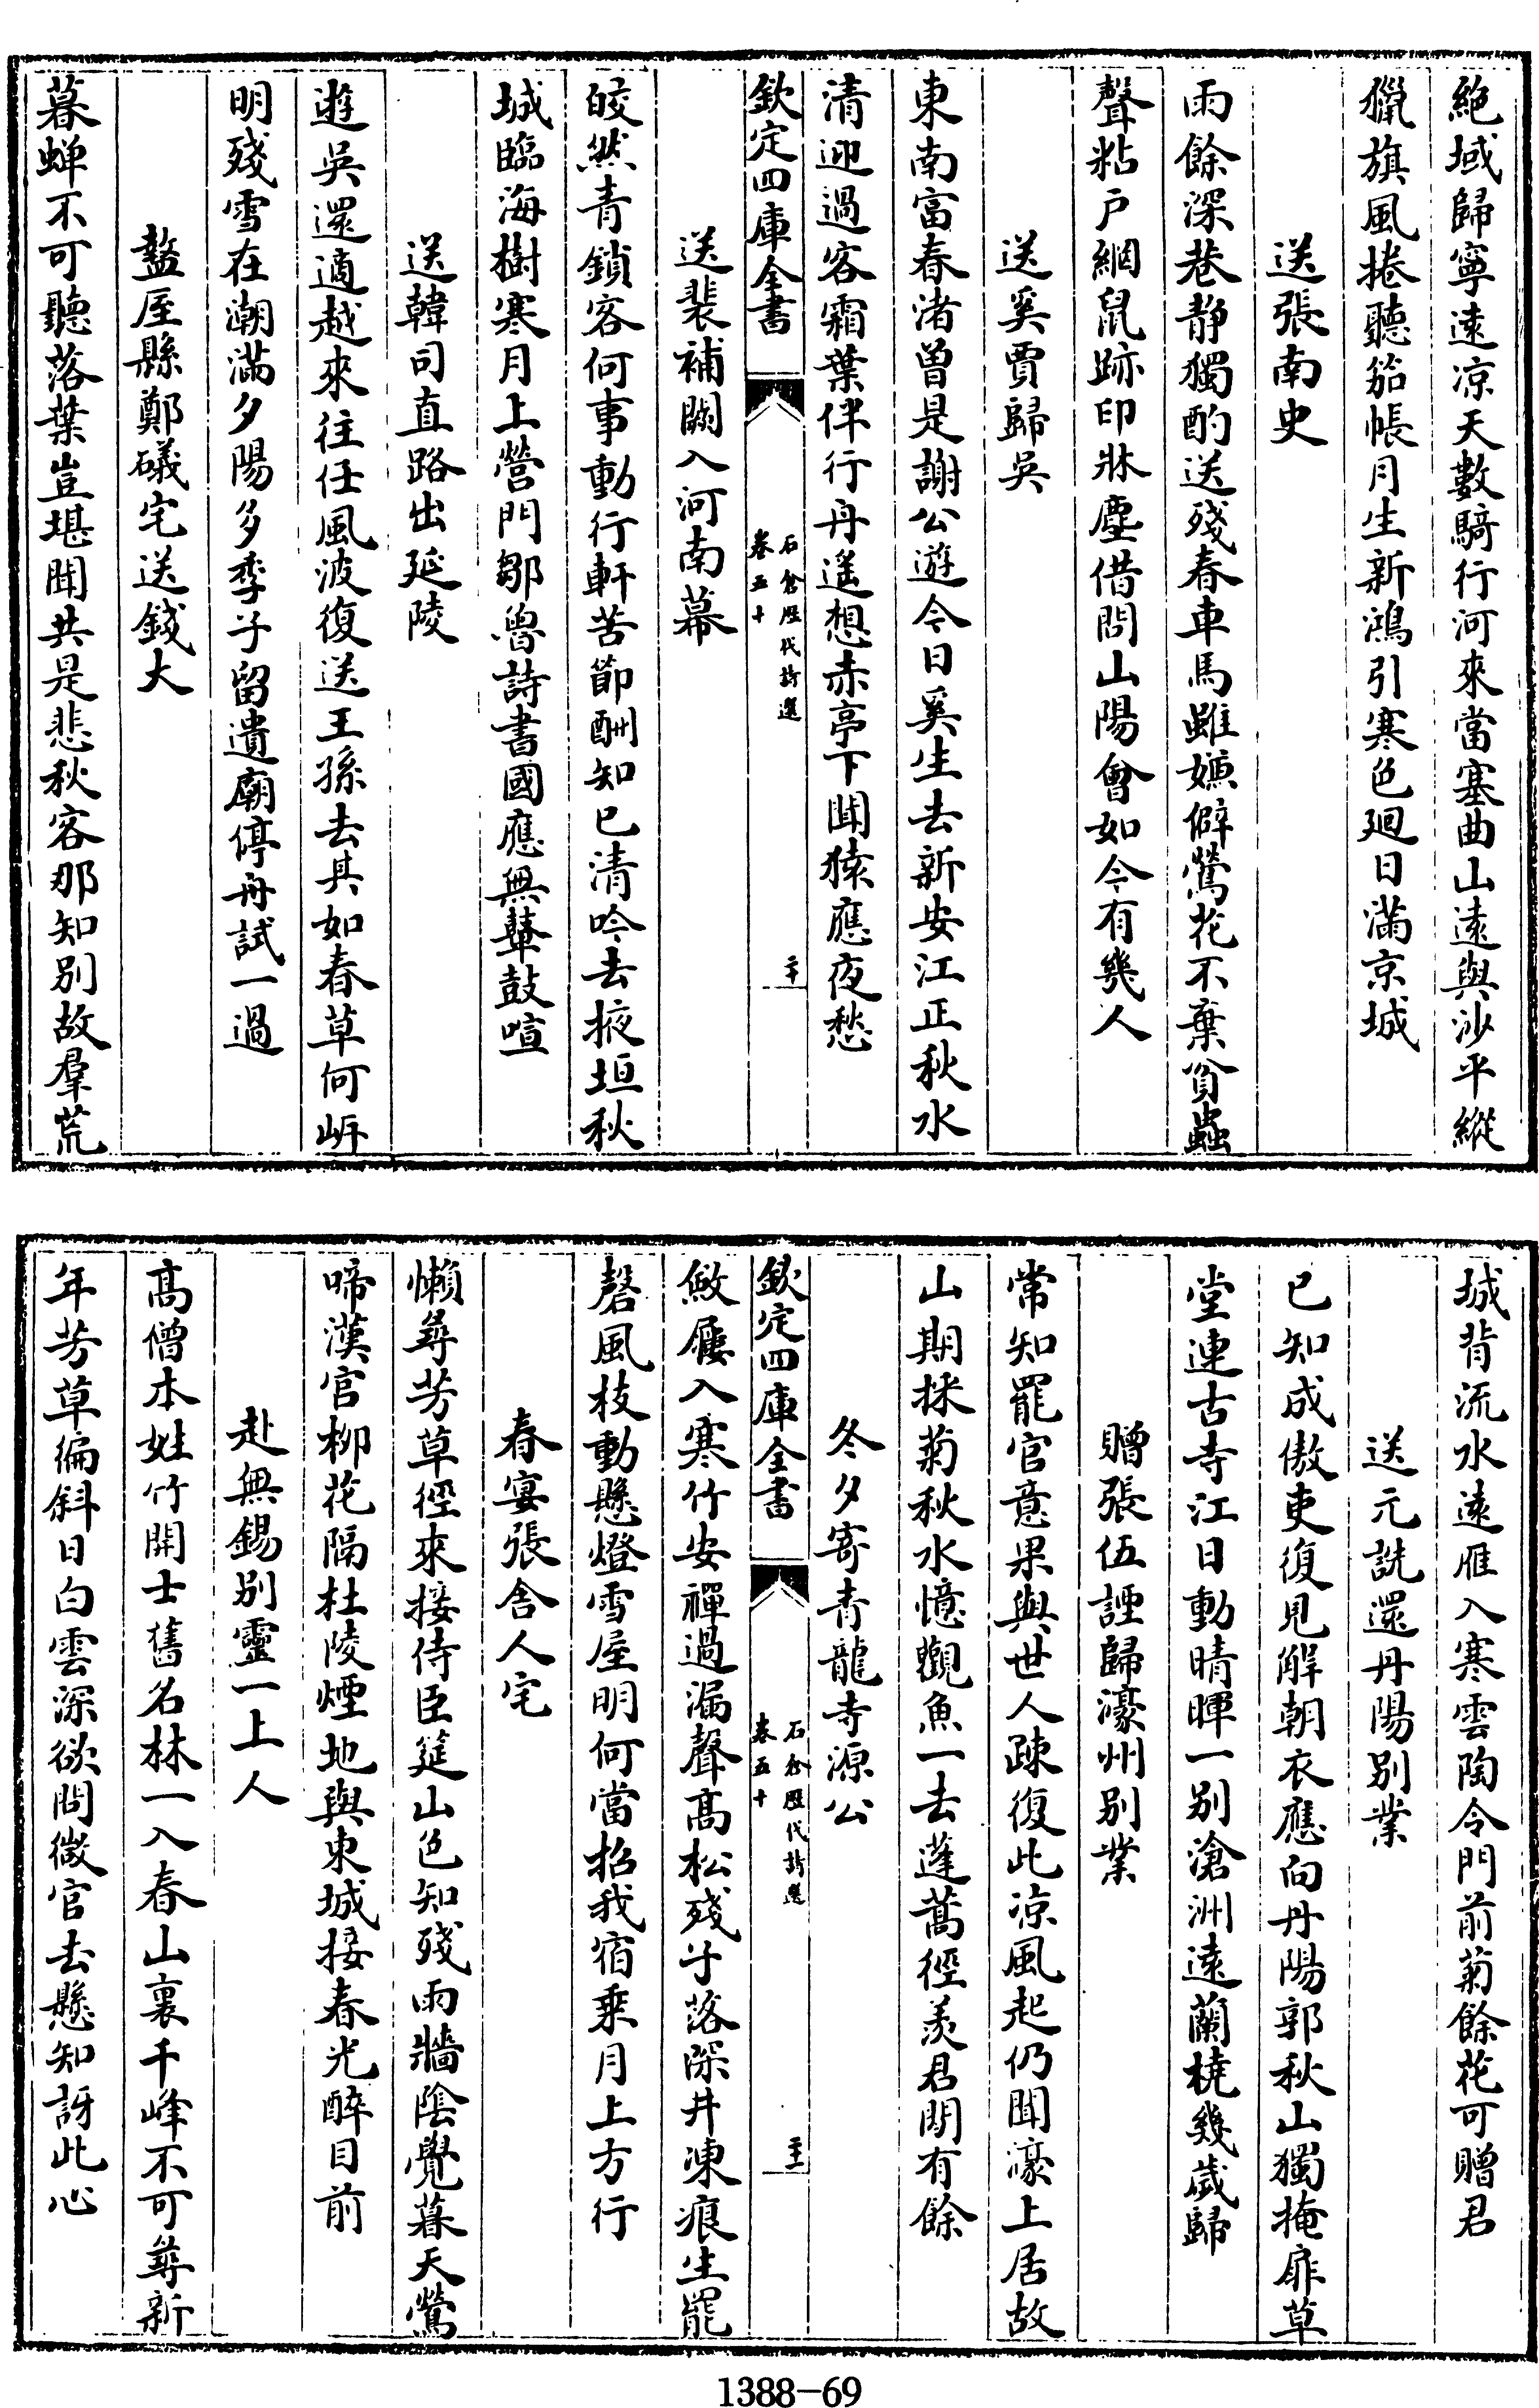 絕域歸寧遠凉天數騎行河來當塞曲山遠與沙平縱
獵旗風捲聽笳帳月生新鴻引寒色廻日滿京城
送張南史
雨餘深巷静獨酌送殘春車馬雖嫌僻鶯花不棄貧蟲
聲粘戶網鼠跡印牀塵借問山陽會如今有幾人
送奚賈歸吳
東南富春渚曽是謝公遊今日奚生去新安江正秋水
清迎過客霜葉伴行舟遥想赤亭下聞猿應夜愁
欽定四庫全書
石倉歷代詩選
卷五十
二十
送裴補闕入河南幕
皎然青鎖客何事動行軒苦節酬知已清吟去掖垣秋
城臨海樹寒月上營門鄒魯詩書國應無鼙鼓喧
送韓司直路出延陵
遊吳還適越來往任風波復送王孫去其如春草何岍
明殘雪在潮滿夕陽多季子留遺廟停舟試一過
盩厔縣鄭礒宅送錢大
暮蝉不可聽落葉豈堪聞共是悲秋客那知别故羣荒
城背流水遠雁入寒雲陶令門前菊餘花可贈君
送元詵還丹陽别業
已知成傲吏復見解朝衣應向丹陽郭秋山獨掩扉草
堂連古寺江日動晴暉一别滄洲遠蘭橈幾歲歸
贈張伍諲歸濠州别業
常知罷官意果與世人疎復此凉風起仍聞濠上居故
山期採菊秋水憶觀魚一去蓬蒿徑羨君閒有餘
冬夕寄青龍寺源公
欽定四庫全書
石倉歷代詩選
卷五十
二十一
斂屨入寒竹安禪過漏聲高松殘子落深井凍痕生罷
磬風枝動懸燈雪屋明何當招我宿乘月上方行
春宴張舍人宅
懶尋芳草徑來接侍臣筵山色知殘雨牆陰覺暮天鶯
啼漢宮柳花隔杜陵煙地與東城接春光醉目前
赴無錫别靈一上人
高僧本姓竹開士舊名林一入春山裏千峰不可尋新
年芳草徧斜日白雲深欲問微官去懸知訝此心
1388-69